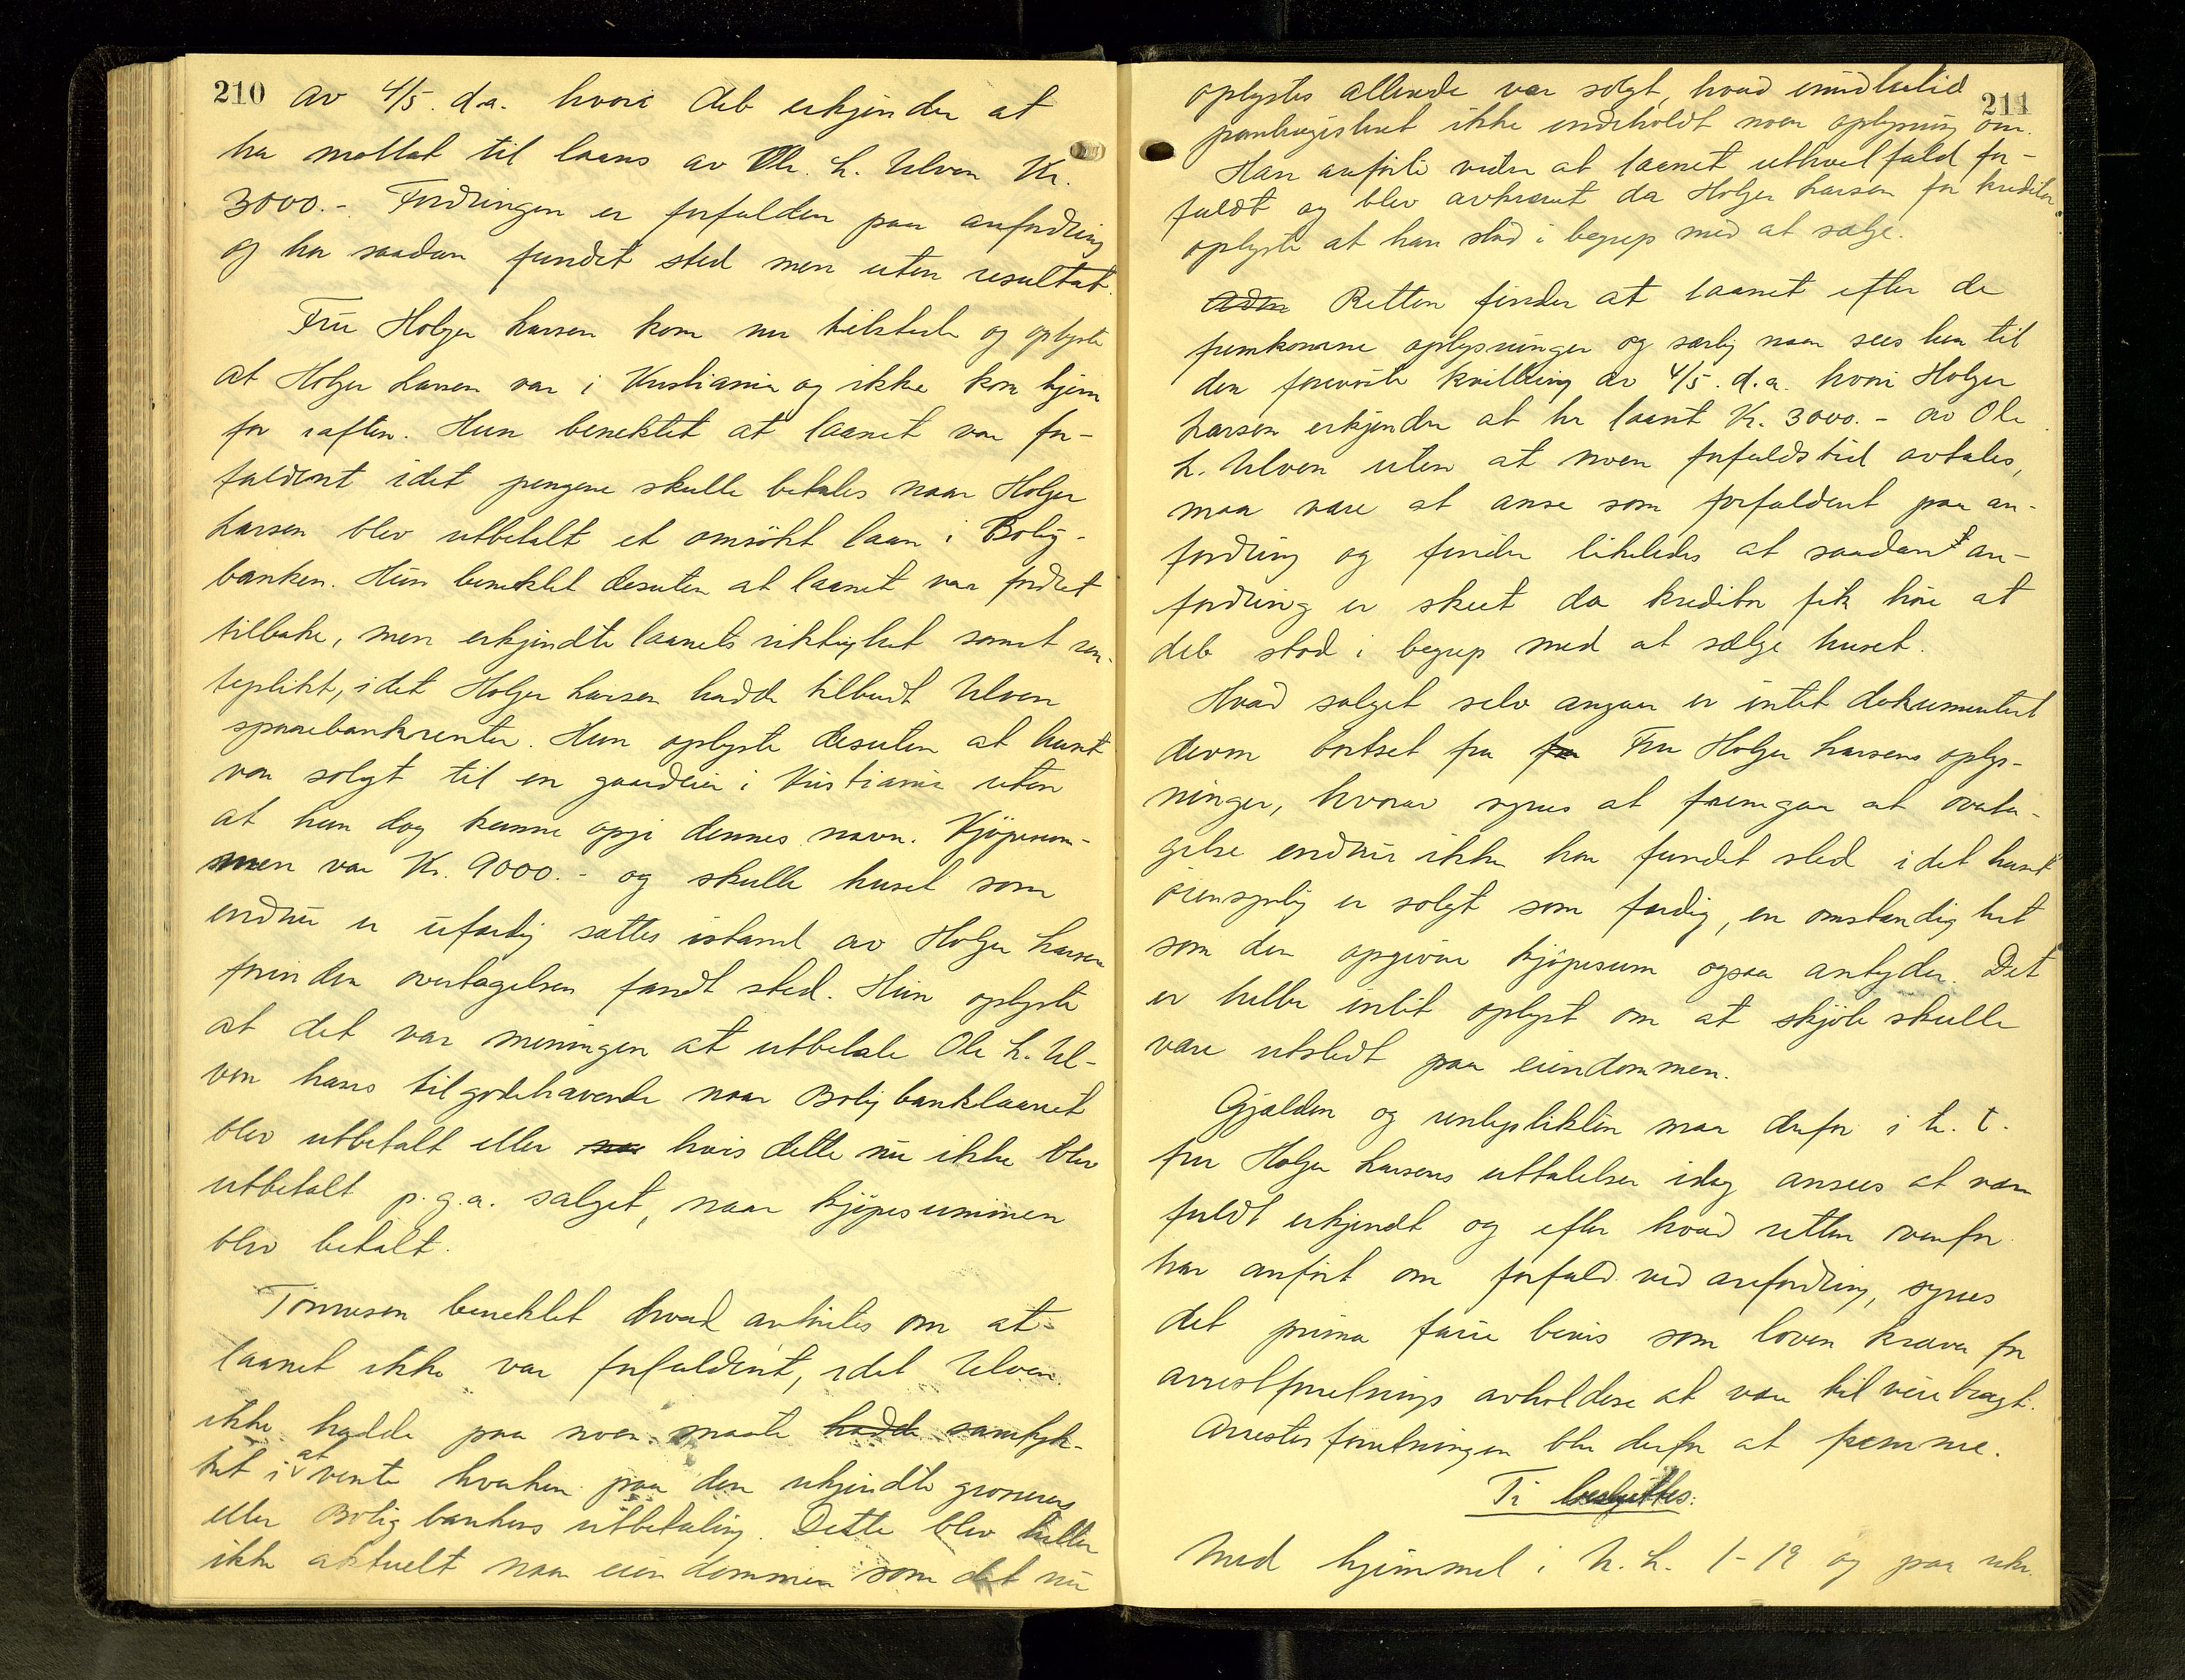 210
av 4/5. d.a. hvori deb erkjender at
ha mottat til laans av Ole. L. Ulven Kr.
3000.- Fordringen er forfalden paa anfordring
og har saadan fundet sted men uten resultat.
Fru Holger Larsen kom nu tilstede og oplyste
at Holger Larsen var i Kristiania og ikke kom hjem
før iaften. Hun benektet at laanet var for-
faldent idet pengene skulle betales naar Holger
Larsen blev utbetalt et omsökt laan i Bolig-
banken. Hun benektet desuten at laanet var fordret
tilbake, men erkjendte laanets riktighet samt ren-
teplikt, idet Holger Larsen hadde tilbudt Ulven
sparebankrenter. Hun oplyste desuten at huset
var solgt til en gaardeier i Kristiania uten
at hun dog kunne opgi dennes navn. Kjöpesum-
men var Kr. 9000.- og skulle huset som
endnu er ufærdig sættes istand av Holger Larsen
forinden overtagelsen fandt sted. Hun oplyste
at det var meningen at utbetale Ole L. Ul-
ven hans tilgodehavende naar Boligbanklaanet
blev utbetalt eller naar hvis dette nu ikke blev
utbetalt p.g.a. salget, naar kjöpesummen
blev betalt.
Tönnesen benektet hvad anförtes om at
laanet ikke var forfaldent, idet Ulven
ikke hadde paa noen maate hadde samtyk-
ket i at vente hverken paa den ukjendte grosserers
eller Boligbankens utbetaling. Dette blev heller
ikke aktuelt naar eiendommen som det nu
211
oplystes allerede var solgt, hvad imidlertid
panteregisteret ikke indeholdt noen oplysning om.
Han anförte videre at laanet ethvert fald for-
faldt og blev avkrævet da Holger Larsen for kreditor
oplyste at han stod i begrep med at sælge.
Retten finder at laanet efter de
fremkomne oplysninger og særlig naar sees hen til
den foreviste kvittering av 4/5. d.a. hvori Holger
Larsen erkjender at ha laant Kr. 3000.- av Ole
L. Ulven uten at noen forfaldstid avtales,
maa være at anse som forfaldent paa an-
fordring og finder likeledes at saadan an-
fordring er skeet da kreditor fik höre at
deb stod i begrep med at sælge huset.
Hvad salget selv angaar er intet dokumentert
derom bortset fra fra Fru Holger Larsens oplys-
ninger, hvorav synes at fremgaa at overta-
gelse endnu ikke har fundet sted idet huset
öiensynlig er solgt som færdig, en omstændighet
som den opgivne kjöpesum ogsaa antyder. Det
er heller intet oplyst om at skjöte skulle
være utstedt paa eiendommen.
Gjælden og renteplikten maa derfor i h. t.
fru Holger Larsens uttalelser idag ansees at være
fuldt erkjendt og efter hvad retten ovenfor
har anfört om forfald ved anfordring, synes
det prima facie bevis som loven kræver for
arrestforretnings avholdelse at være tilveiebragt.
Arrestforretningen blir derfor at fremme.
Ti besluttes:
Med hjemmel i N. L. 1-19 og paa rekv.